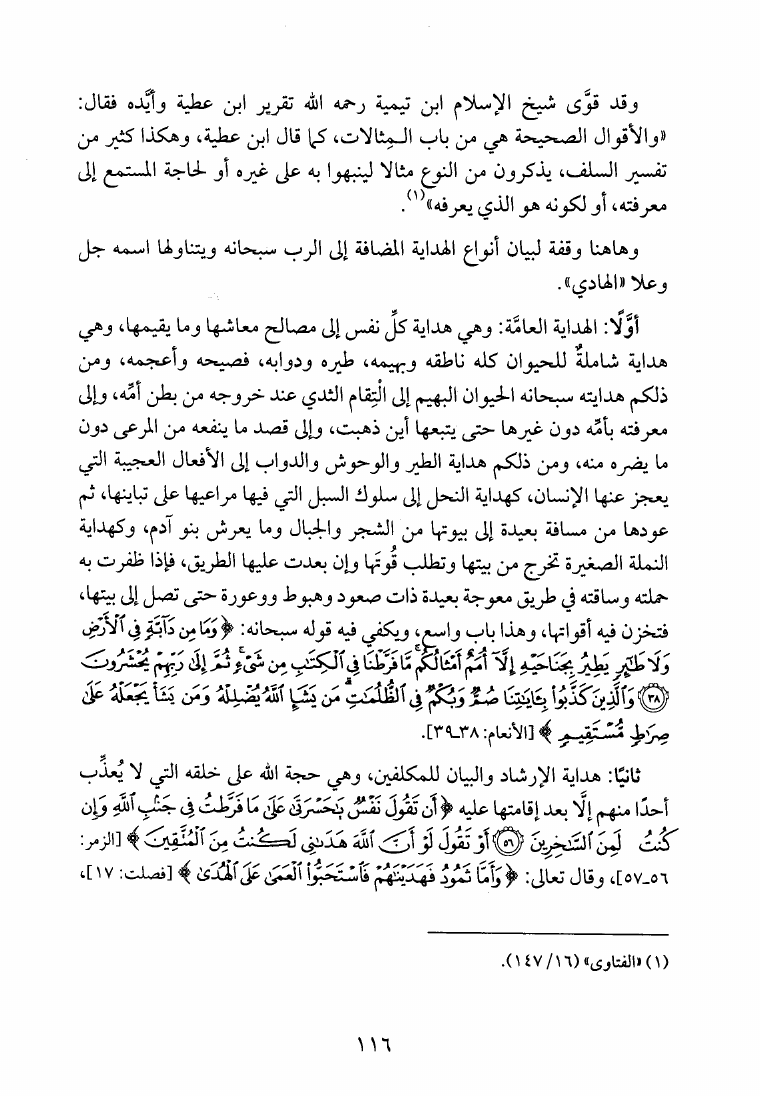 وقد قوَّى شيخ الإسلام ابن تيمية رحمه الله تقرير ابن عطية وأيَّده فقال:
«والأقوال الصحيحة هي من باب المِثالات، كما قال ابن عطية، وهكذا كثير من
تفسير السلف، يذكرون من النوع مثالا لينبهوا به على غيره أو لحاجة المستمع إلى
معرفته، أو لكونه هو الذي يعرفه»(١).
وهاهنا وقفة لبيان أنواع الهداية المضافة إلى الرب سبحانه ويتناولها اسمه جل
وعلا «الهادي».
أوَّلًا: الهداية العامَّة: وهي هداية كلِّ نفس إلى مصالح معاشها وما يقيمها، وهي
هداية شاملةٌ للحيوان كله ناطقه وبهيمه، طيره ودوابه، فصيحه وأعجمه، ومن
ذلكم هدايته سبحانه الحيوان البهيم إلى الْتِقام الثدي عند خروجه من بطن أمِّه، وإلى
معرفته بأمِّه دون غيرها حتى يتبعها أين ذهبت، وإلى قصد ما ينفعه من المرعى دون
ما يضره منه، ومن ذلكم هداية الطير والوحوش والدواب إلى الأفعال العجيبة التي
يعجز عنها الإنسان، كهداية النحل إلى سلوك السبل التي فيها مراعيها على تباينها، ثم
عودها من مسافة بعيدة إلى بيوتها من الشجر والجبال وما يعرش بنو آدم، وكهداية
النملة الصغيرة تخرج من بيتها وتطلب قُوتَها وإن بعدت عليها الطريق، فإذا ظفرت به
حملته وساقته في طريق معوجة بعيدة ذات صعود وهبوط ووعورة حتى تصل إلى بيتها،
فتخزن فيه أقواتها، وهذا باب واسع، ويكفي فيه قوله سبحانه: ﴿وَمَا مِن دَآبَّةٍ فِي ٱلْأَرْضِ
وَلَا طَٰٓئِرٍ يَطِيرُ بِجَنَاحَيْهِ إِلَّآ أُمَمٌ أَمْثَالُكُم مَّا فَرَّطْنَا فِي ٱلْكِتَٰبِ مِن شَيْءٍ ثُمَّ إِلَىٰ رَبِّهِمْ يُحْشَرُونَ
﴿٣٨﴾ وَٱلَّذِينَ كَذَّبُوا۟ بِـَٔايَٰتِنَا صُمٌّ وَبُكْمٌ فِي ٱلظُّلُمَٰتِ مَن يَشَإِ ٱللَّهُ يُضْلِلْهُ وَمَن يَشَأْ يَجْعَلْهُ عَلَىٰ
صِرَٰطٍ مُّسْتَقِيمٍ﴾ [الأنعام: ٣٨ـ٣٩].
ثانيًا: هداية الإرشاد والبيان للمكلفين، وهي حجة الله على خلقه التي لا يُعذِّب
أحدًا منهم إلَّا بعد إقامتها عليه ﴿أَن تَقُولَ نَفْسٌ يَٰحَسْرَتَىٰ عَلَىٰ مَا فَرَّطتُ فِي جَنۢبِ ٱللَّهِ وَإِن
كُنتُ لَمِنَ ٱلسَّٰخِرِينَ ﴿٥٦﴾ أَوْ تَقُولَ لَوْ أَنَّ ٱللَّهَ هَدَىٰنِي لَكُنتُ مِنَ ٱلْمُتَّقِينَ﴾ [الزمر:
٥٦ـ٥٧]، وقال تعالى: ﴿وَأَمَّا ثَمُودُ فَهَدَيْنَٰهُمْ فَٱسْتَحَبُّوا۟ ٱلْعَمَىٰ عَلَى ٱلْهُدَىٰ﴾ [فصلت: ١٧]،
(١) «الفتاوى» (١٦/ ١٤٧).
١١٦